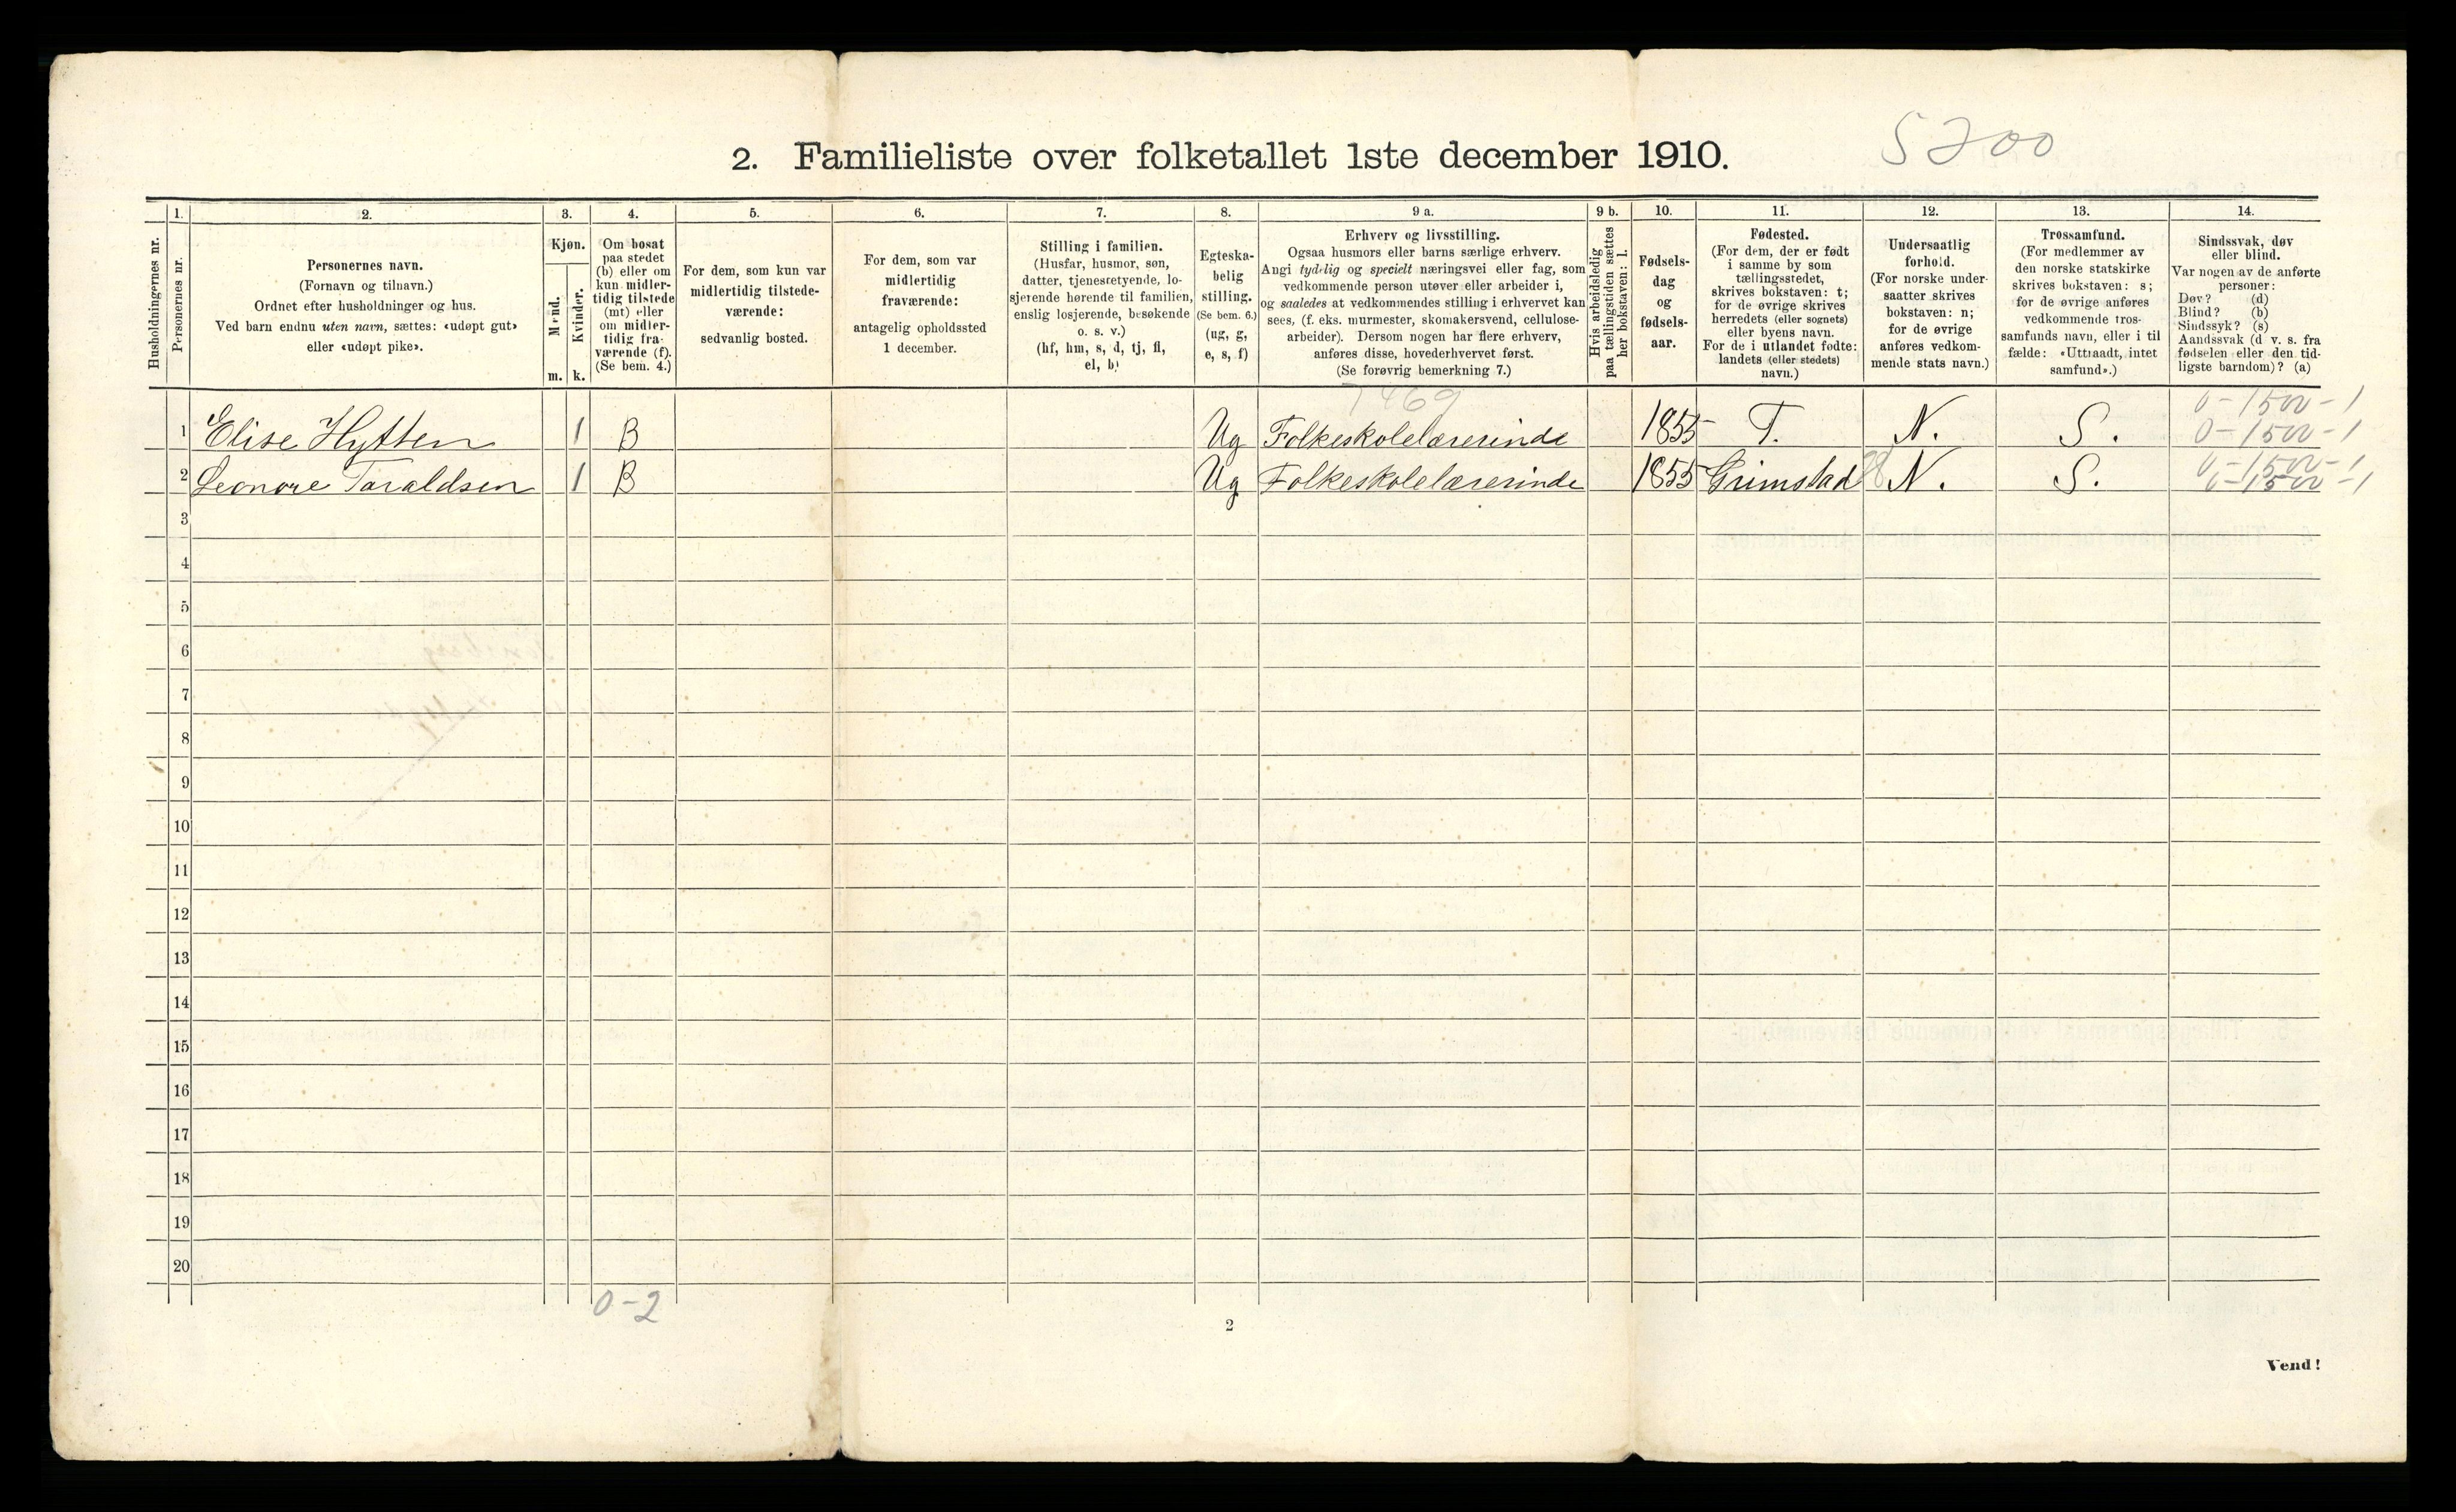 5200
2. Familieliste over folketallet 1ste december 1910.
Husholdningernes nr.
1. Personernes nr.
2.
Personernes navn.
(Fornavn og tilnavn.)
Ordnet efter husholdninger og hus.
Ved barn endnu uten navn, sættes: «udøpt gut»
eller «udøpt pike».
3.
Kjøn.
Mænd.
Kvinder.
m. k.
4.
Om bosat
paa stedet
(b) eller om
kun midler-
tidig tilstede
(mt) eller
om midler-
tidig fra-
værende (f).
(Se bem. 4.)
5.
For dem, som kun var
midlertidig tilstede-
værende:
sedvanlig bosted.
6.
For dem, som var
midlertidig
fraværende:
antagelig opholdssted
1 december.
7.
Stilling i familien.
(Husfar, husmor, søn,
datter, tjenestetyende, lo-
sjerende hørende til familien,
enslig losjerende, besøkende
o. s. v.)
(hf, hm, s, d, tj, fl,
el, b)
8.
Egteska-
belig
stilling.
(Se bem. 6.)
(ug, g,
e, s, f)
9 a.
Erhverv og livsstilling.
Ogsaa husmors eller barns særlige erhverv.
Angi tydelig og specielt næringsvei eller fag, som
vedkommende person utøver eller arbeider i,
og saaledes at vedkommendes stilling i erhvervet kan
sees, (f. eks. murmester, skomakersvend, cellulose-
arbeider). Dersom nogen har flere erhverv,
anføres disse, hovederhvervet først.
(Se forøvrig bemerkning 7.)
9 b.
Hvis arbeidsledig
paa tællingstiden sættes
her bokstaven: l.
10.
Fødsels-
dag
og
fødsels-
aar.
11.
Fødested.
(For dem, der er født
i samme by som
tællingsstedet,
skrives bokstaven: t;
for de øvrige skrives
herredets (eller sognets)
eller byens navn.
For de i utlandet fødte:
landets (eller stedets)
navn.)
12.
Undersaatlig
forhold.
(For norske under-
saatter skrives
bokstaven: n;
for de øvrige
anføres vedkom-
mende stats navn.)
13.
Trossamfund.
(For medlemmer av
den norske statskirke
skrives bokstaven: s;
for de øvrige anføres
vedkommende tros-
samfunds navn, eller i til
fælde: «Uttraadt, intet
samfund».)
14.
Sindssvak, døv
eller blind.
Var nogen av de anførte
personer:
Døv? (d)
Blind? (b)
Sindssyk? (s)
Aandssvak (d v. s. fra
fødselen eller den tid-
ligste barndom)? (a)
7469
0-1500-1
1 Elise Hytten 1 B Ug Folkeskolelærerinde 1855 T. N. S. 0-1500-1
0-1500-1
2 Leonore Taraldsen 1 B Ug Folkeskolelærerinde 1855 Grimstad N. S. 0-1500-1
3
4
5
6
7
8
9
10
11
12
13
14
15
16
17
18
19
20
0-2
2
Vend!